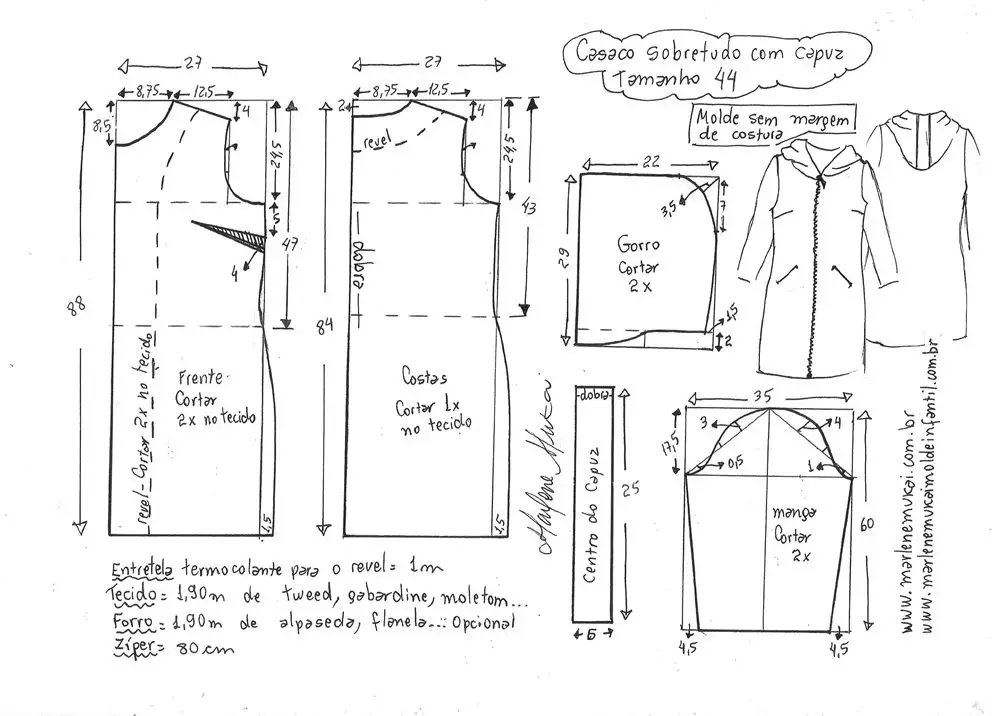 Casaco sobretudo com capuz
Tamanho 44
Molde sem margem
de costura
27
8,75
12,5
4
8,5
24,5
5
47
4
88
revel=Cortar 2x no tecido
Frente
Cortar
2x no tecido
1,5
27
2
8,75
12,5
4
revel
24,5
43
dobra
84
Costas
Cortar 1x
no tecido
1,5
22
3,5
7
29
Gorro
Cortar
2x
1,5
2
dobra
Centro do Capuz
25
5
35
3
4
17,5
0,5
1
manga
Cortar
2x
60
4,5
4,5
Marlene Mukai
www.marlenemukai.com.br
www.marlenemukaimoldeinfantil.com.br
Entretela termocolante para o revel= 1m
Tecido= 1,90m de tweed, gabardine, moletom...
Forro=1,90m de alpaseda, flanela... Opcional
Zíper= 80cm